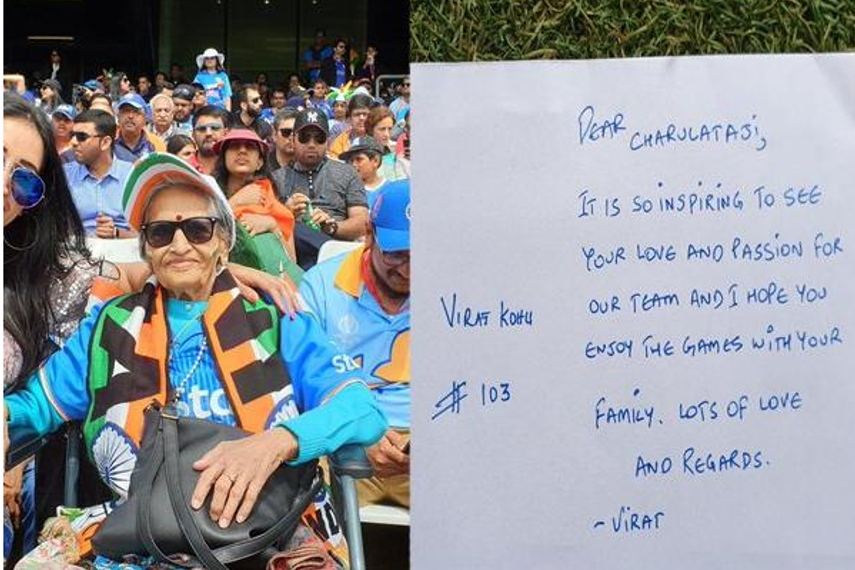 DEAR CHARULATAJI,
IT IS SO INSPIRING TO SEE
YOUR LOVE AND PASSION FOR
OUR TEAM AND I HOPE YOU
ENJOY THE GAMES WITH YOUR
FAMILY. LOTS OF LOVE
AND REGARDS.
~ VIRAT
VIRAT KOHLI
# 103